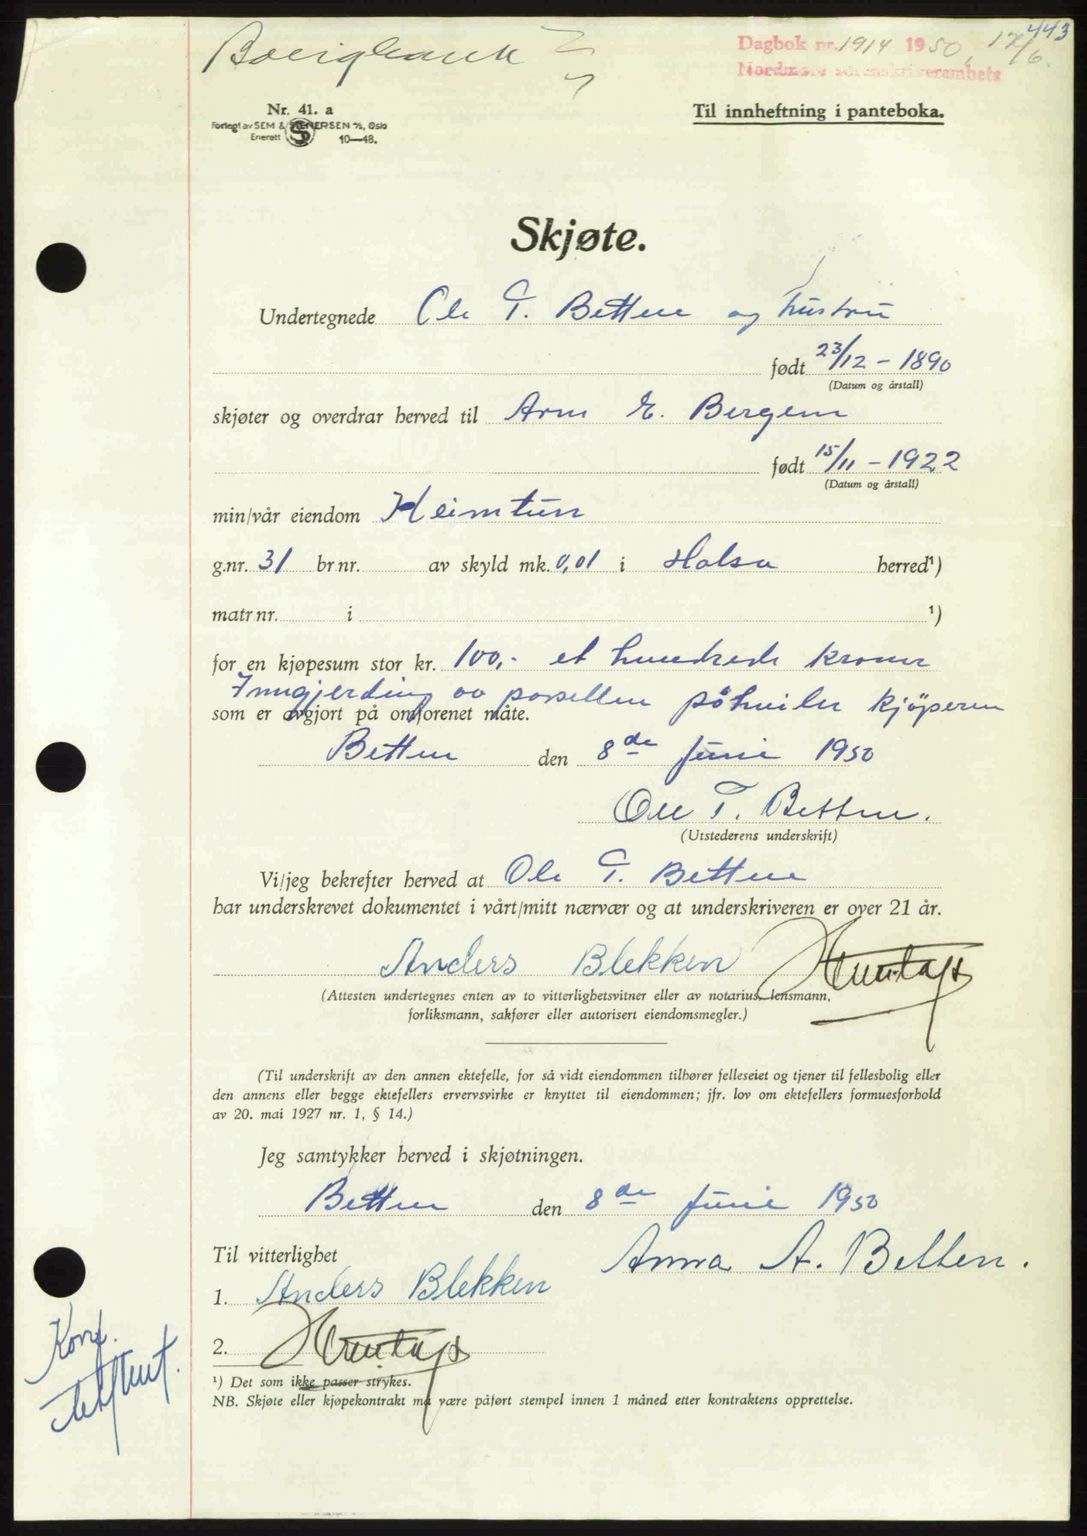 443
Dagbok nr. 1914 1950, 17/6.
Nordmøre sorenskriverembete
Nr. 41. a
Forlagt av SEM & STENERSEN A/S, Oslo
Enerett 10—48.
Til innheftning i panteboka.
Skjøte.
Undertegnede Ole T. Betten og hustru
født 23/12 - 1890
(Datum og årstall)
skjøter og overdrar herved til Arne E. Bergem
født 15/11 - 1922
(Datum og årstall)
min/vår eiendom Heimtun
g.nr. 31 br.nr. av skyld mk. 0,01 i Halsa herred¹)
matr.nr. i ¹)
for en kjøpesum stor kr. 100,- et hundrede kroner
Inngjerding av parsellen påhviler kjøperen
som er avgjort på omforenet måte.
Betten den 8de Juni 1950
Ole T. Betten.
(Utstederens underskrift)
Vi/jeg bekrefter herved at Ole T. Betten
har underskrevet dokumentet i vårt/mitt nærvær og at underskriveren er over 21 år.
Anders Blekken
(Attesten undertegnes enten av to vitterlighetsvitner eller av notarius, lensmann,
forliksmann, sakfører eller autorisert eiendomsmegler.)
(Til underskrift av den annen ektefelle, for så vidt eiendommen tilhører felleseiet og tjener til fellesbolig eller
den annens eller begge ektefellers ervervsvirke er knyttet til eiendommen; jfr. lov om ektefellers formuesforhold
av 20. mai 1927 nr. 1, § 14.)
Jeg samtykker herved i skjøtningen.
Betten den 8de Juni 1950
Til vitterlighet
Anna A. Betten.
1. Anders Blekken
2.
¹) Det som ikke passer strykes.
NB. Skjøte eller kjøpekontrakt må være påført stempel innen 1 måned etter kontraktens opprettelse.
Konf.